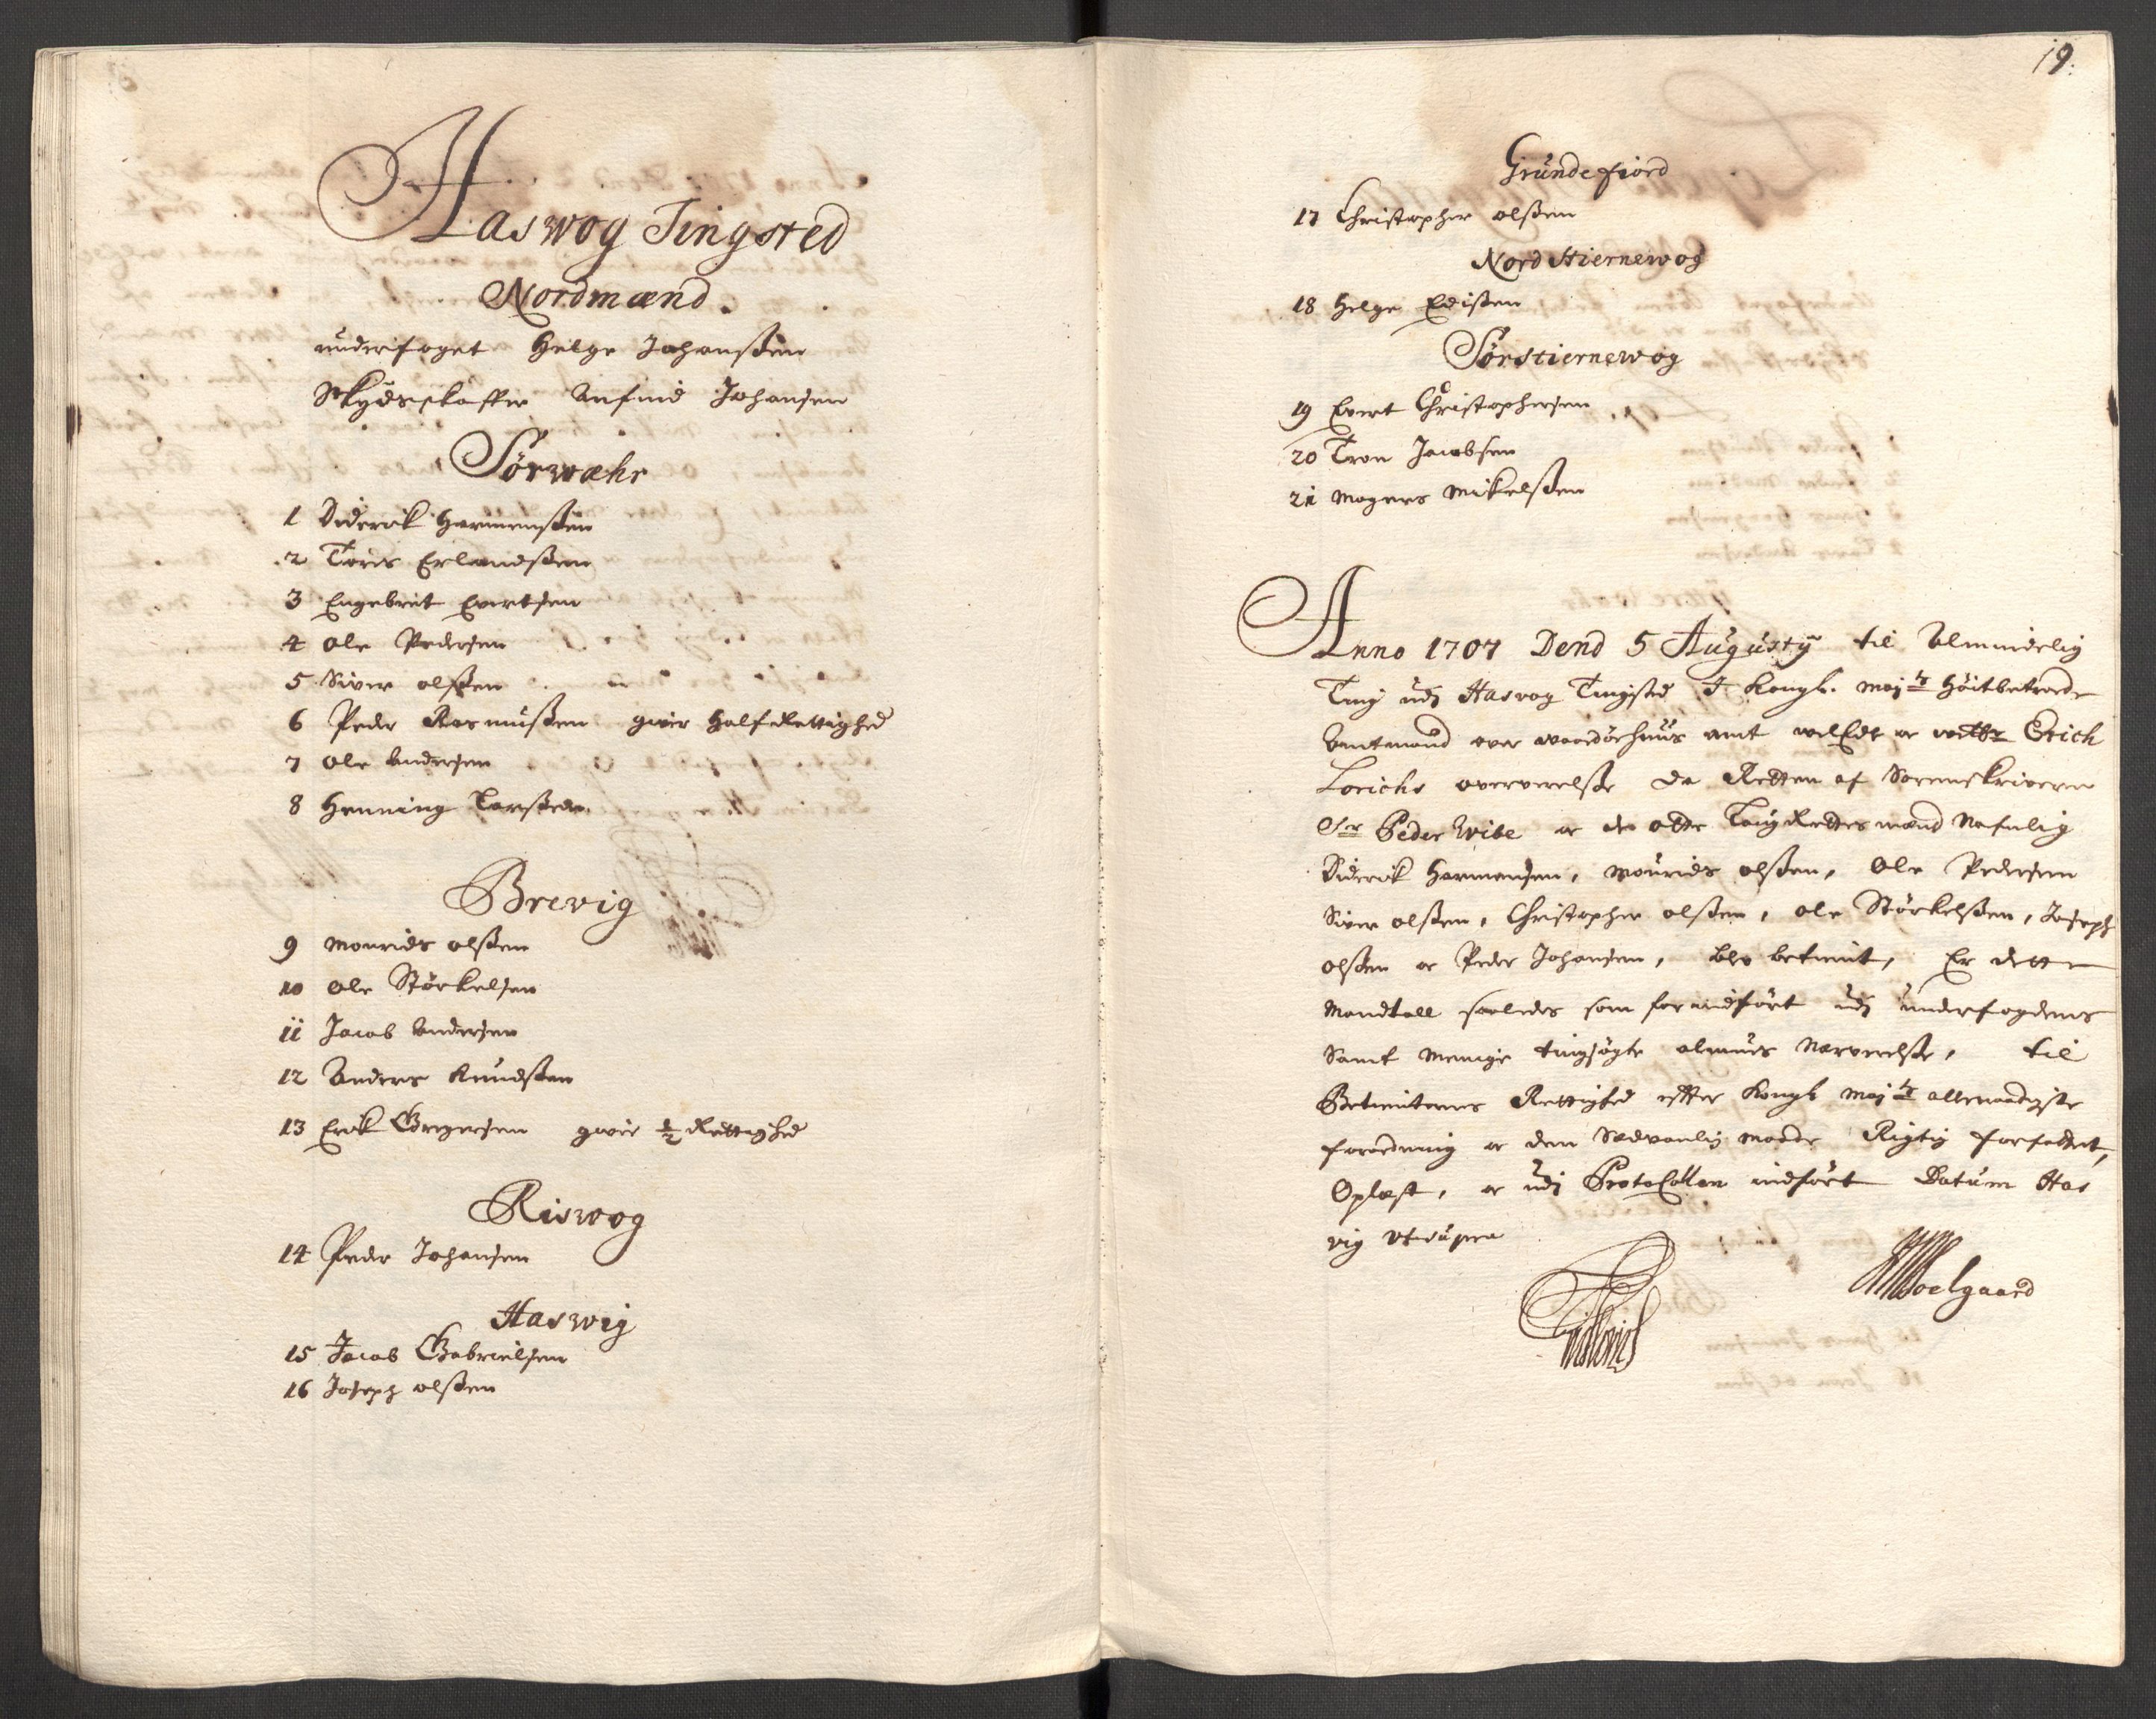 Haswog Tingsted
Nordmænd.
underfoget Helge Johanßen
Skydsskaffer Anfind Johansen
Sørwæhr
1 Diderick Harmenßen
2 Toris Erlandßen
3 Engebret Evertsen
4 Ole Pedersen
5 Siver olßen
6 Peder Rasmußen giver Half Rettighed
7 Ole Andersen
8 Henning Larßen
Brevig
9 Mourids olßen
10 Ole Størkelsen
11 Jacob Andersen
12 Anders Knudßen
13 Erik Gregersen giver ½ Rettighed
Riswog
14 Peder Johansen
Haswig
15 Jacob Gabrielsen
16 Joseph olßen
19.
Grundefiord
17 Christopher olßen
Nord Stiernewog
18 Helge Edißen
Sørstiernewog
19 Evert Christophersen
20 Tron Jacobsen
21 Mogens Mikelßen
Anno 1707 Dend 5 Augusty til Almindelig
Ting udj Hasvog Tingsted, I Kongl. May:ts Høitbetroede
Amtmand over Wardøehuus amt welEdle og Erich
Lorichs oververelße da Retten af Sorenskriveren
Sr Peder Wibe og de otte LaugRettesmænd Nafnlig
Diderick Harmensen, Mourids olßen, Ole Pedersen
Siver olßen, Christopher olßen, ole Størkelßen, Joseph
olßen og Peder Johansen, blev betient, Er dette
Mandtall saaledes som forindført udj underfogdens
Samt Menige tingsøgte almues Nærverelße, til
Betienternes Rettighed efter Kongl May:ts allernaadigste
forordning og den Sædvanlig Maade Rigtig forfattet,
Oplæst, og udj Protocollen indført Datum Has
vig ut supra
Moelgaard